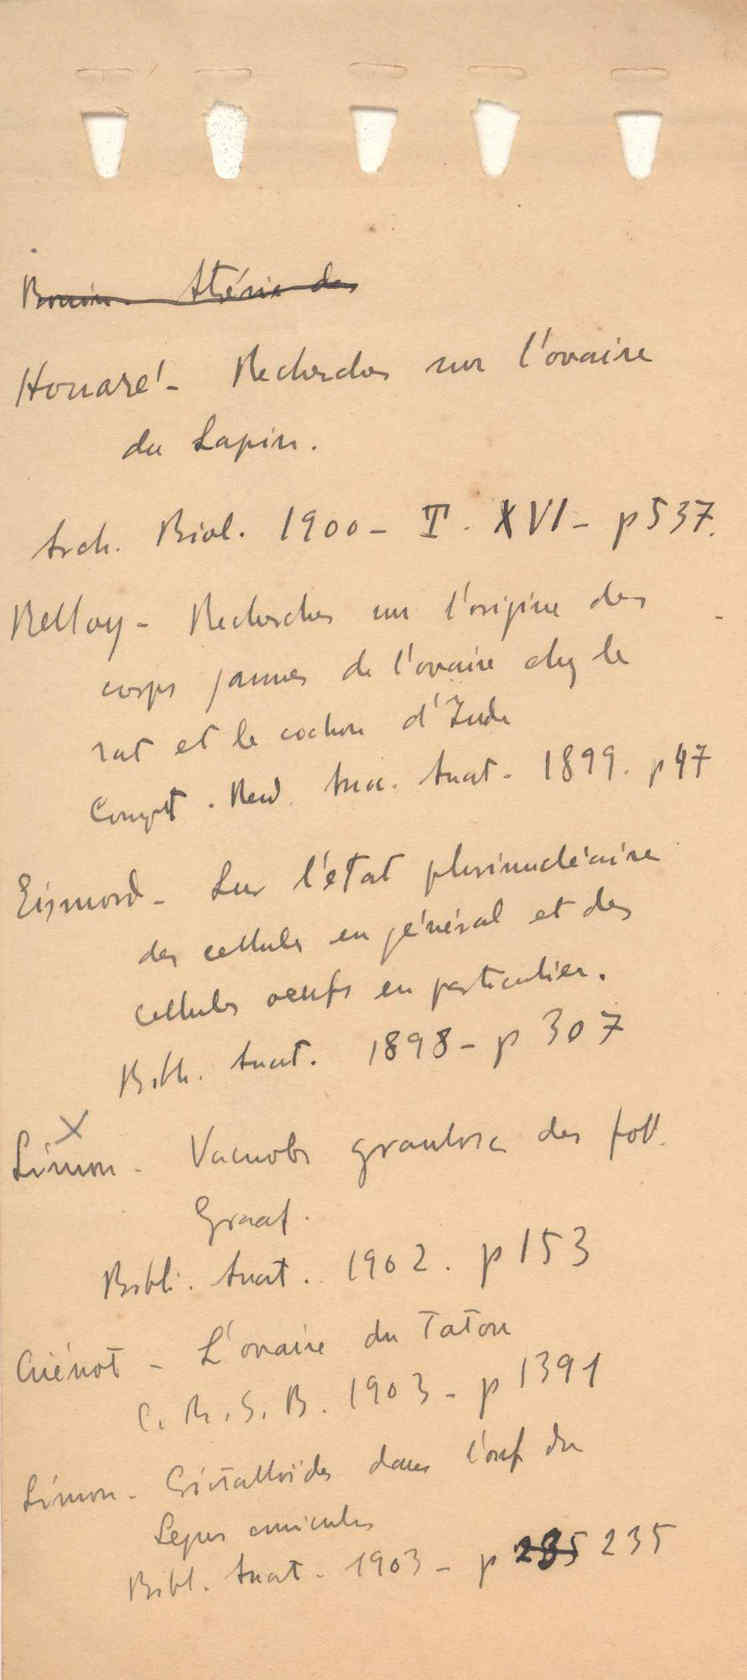 Bouin. Atrésie des
Honoré - Recherches sur l'ovaire
du Lapin.
Arch. Biol. 1900 - T. XVI - p 537.
Belloy - Recherches sur l'origine des
corps jaunes de l'ovaire chez le
rat et le cochon d'Inde
Compt. Rend. Anat. 1899. p 47
Eismond - Sur l'état plurinucléaire
des cellules en général et des
cellules oeufs en particulier.
Bibl. Anat. 1898 - p 307
X
Limon - granulosa des foll.
Graaf.
Bibli. Anat. 1902. p 153
Cuénot - L'ovaire du Tatou
C. R. S. B. 1903 - p 1391
Limon - Cristalloïdes dans l'oeuf du
Lepus cuniculus
Bibl. Anat. 1903 - p 235